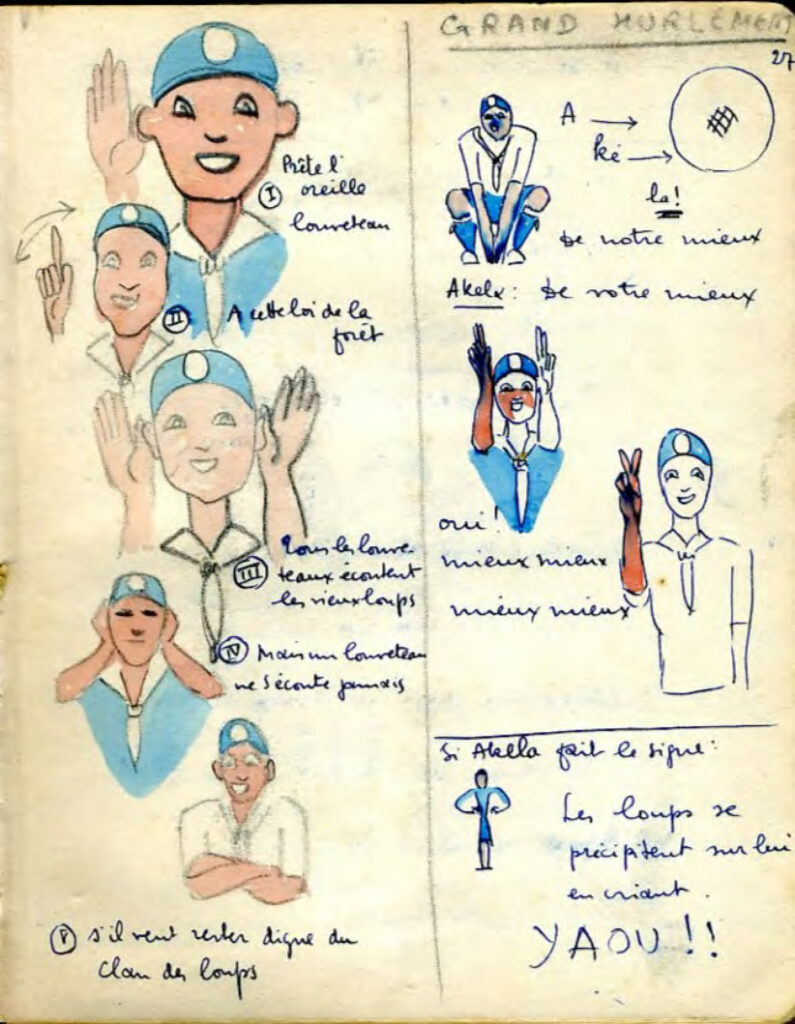 GRAND HURLEMENT
27
I
Prête l'
oreille
louveteau
II
A cette loi de la
forêt
III
Tous les louve-
teaux écoutent
les vieux loups
IV
Mais un louveteau
ne s'écoute jamais
V
s'il veut rester digne du
clan des loups
A
ké
la!
de notre mieux
Akela: de votre mieux
oui!
mieux mieux
mieux mieux
Si Akella fait le signe:
Les loups se
précipitent sur lui
en criant.
YAOU!!